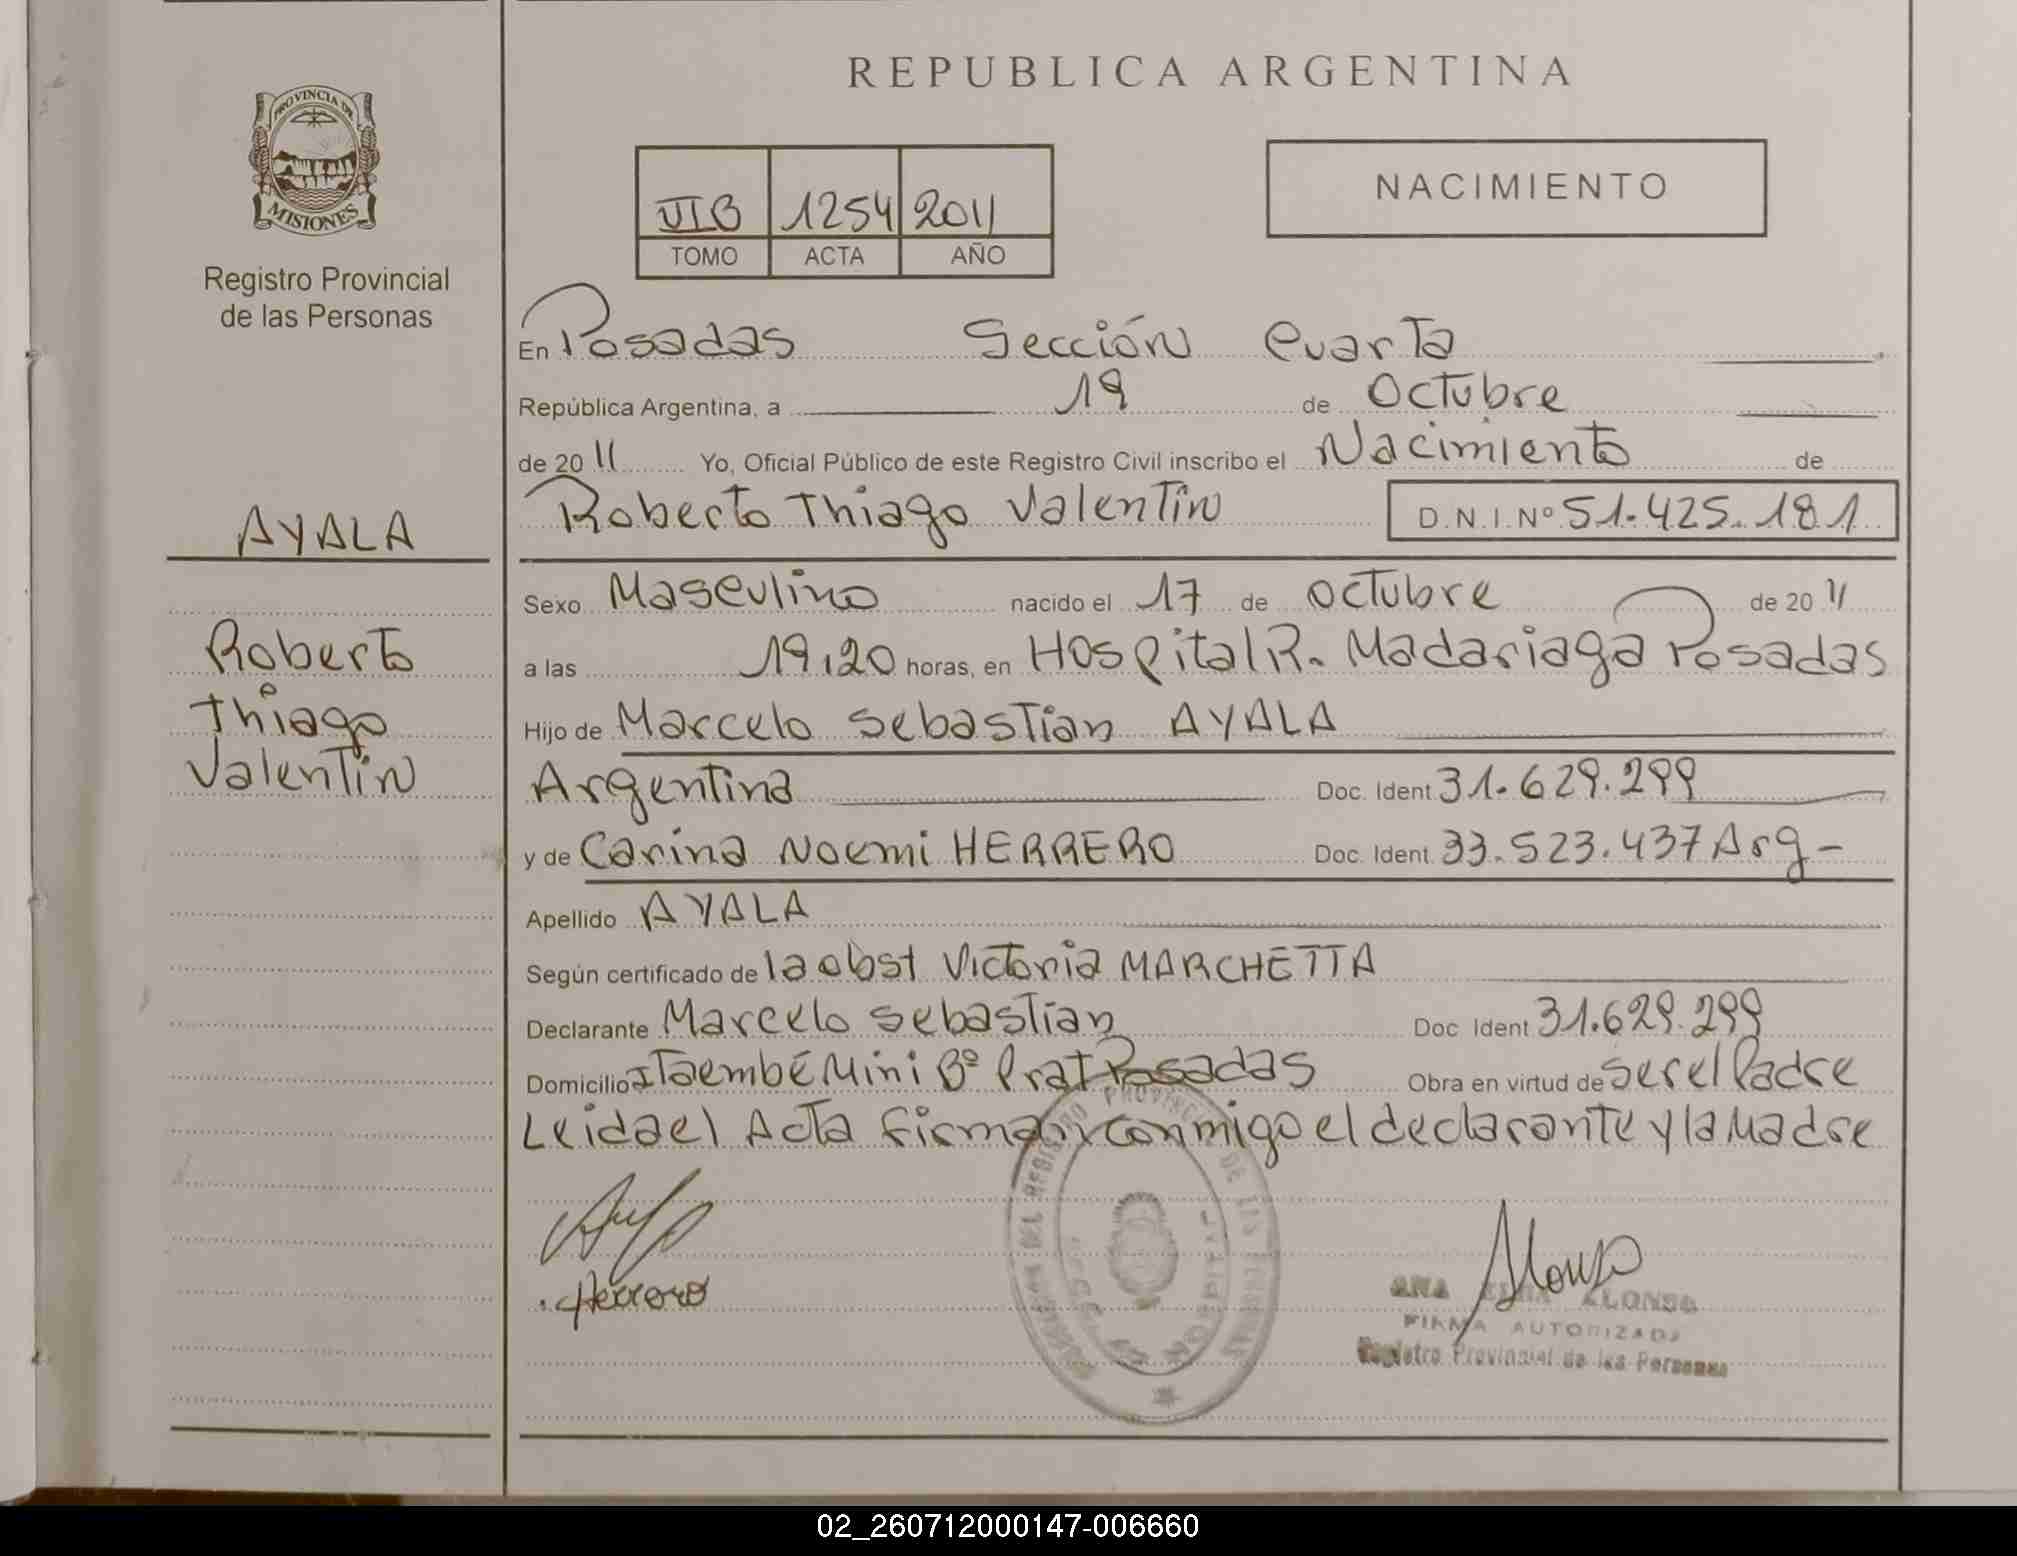 PROVINCIA DE
MISIONES
Registro Provincial
de las Personas
AYALA
Roberto
Thiago
Valentin
REPUBLICA ARGENTINA
VIB 1254 2011
TOMO ACTA AÑO
NACIMIENTO
En Posadas Sección Cuarta
República Argentina, a 19 de Octubre
de 2011 Yo, Oficial Público de este Registro Civil inscribo el Nacimiento de
Roberto Thiago Valentin D.N.I. Nº 51.425.181
Sexo Masculino nacido el 17 de octubre de 2011
a las 19,20 horas, en Hospital R. Madariaga Posadas
Hijo de Marcelo Sebastian AYALA
Argentina Doc. Ident 31.629.299
y de Carina Noemi HERRERO Doc. Ident. 33.523.437 Arg-
Apellido AYALA
Según certificado de la obst Victoria MARCHETTA
Declarante Marcelo Sebastian Doc Ident 31.629.299
Domicilio Itaembé Mini Bº Prat Posadas Obra en virtud de ser el Padre
Leida el Acta firman conmigo el declarante y la Madre
Herrero
Alonso
ANA ALONSO
FIRMA AUTORIZADA
Registro Provincial de las Personas
02_260712000147-006660